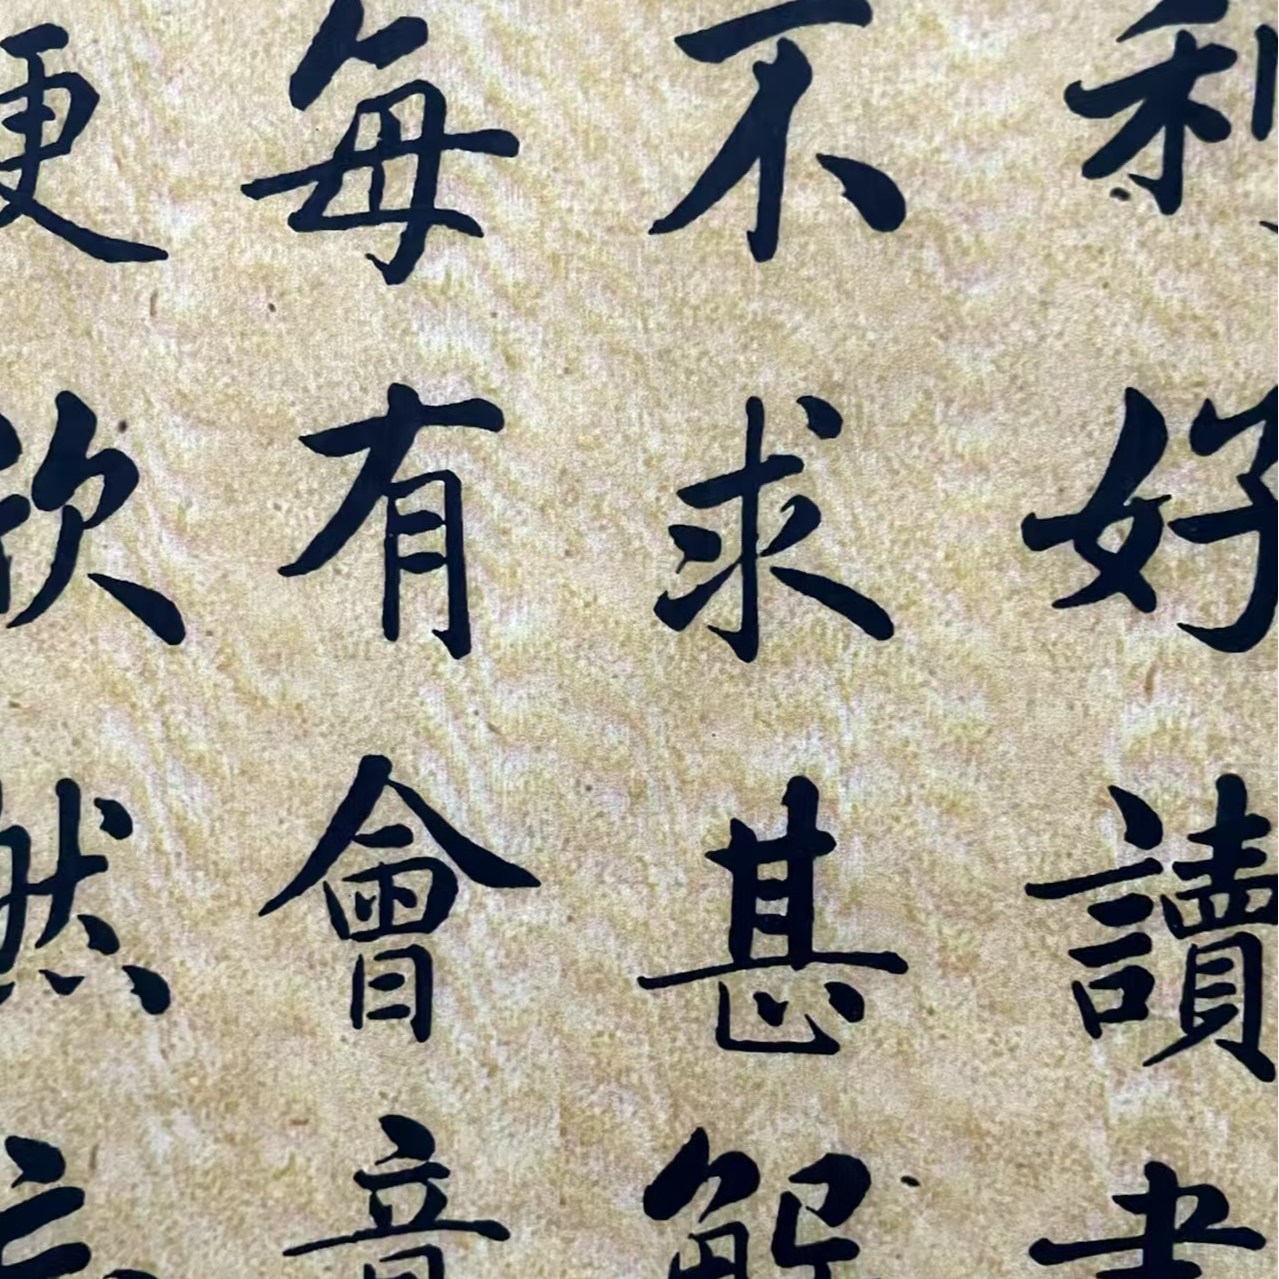 利好讀書
不求甚解
每有會意
便欣然忘